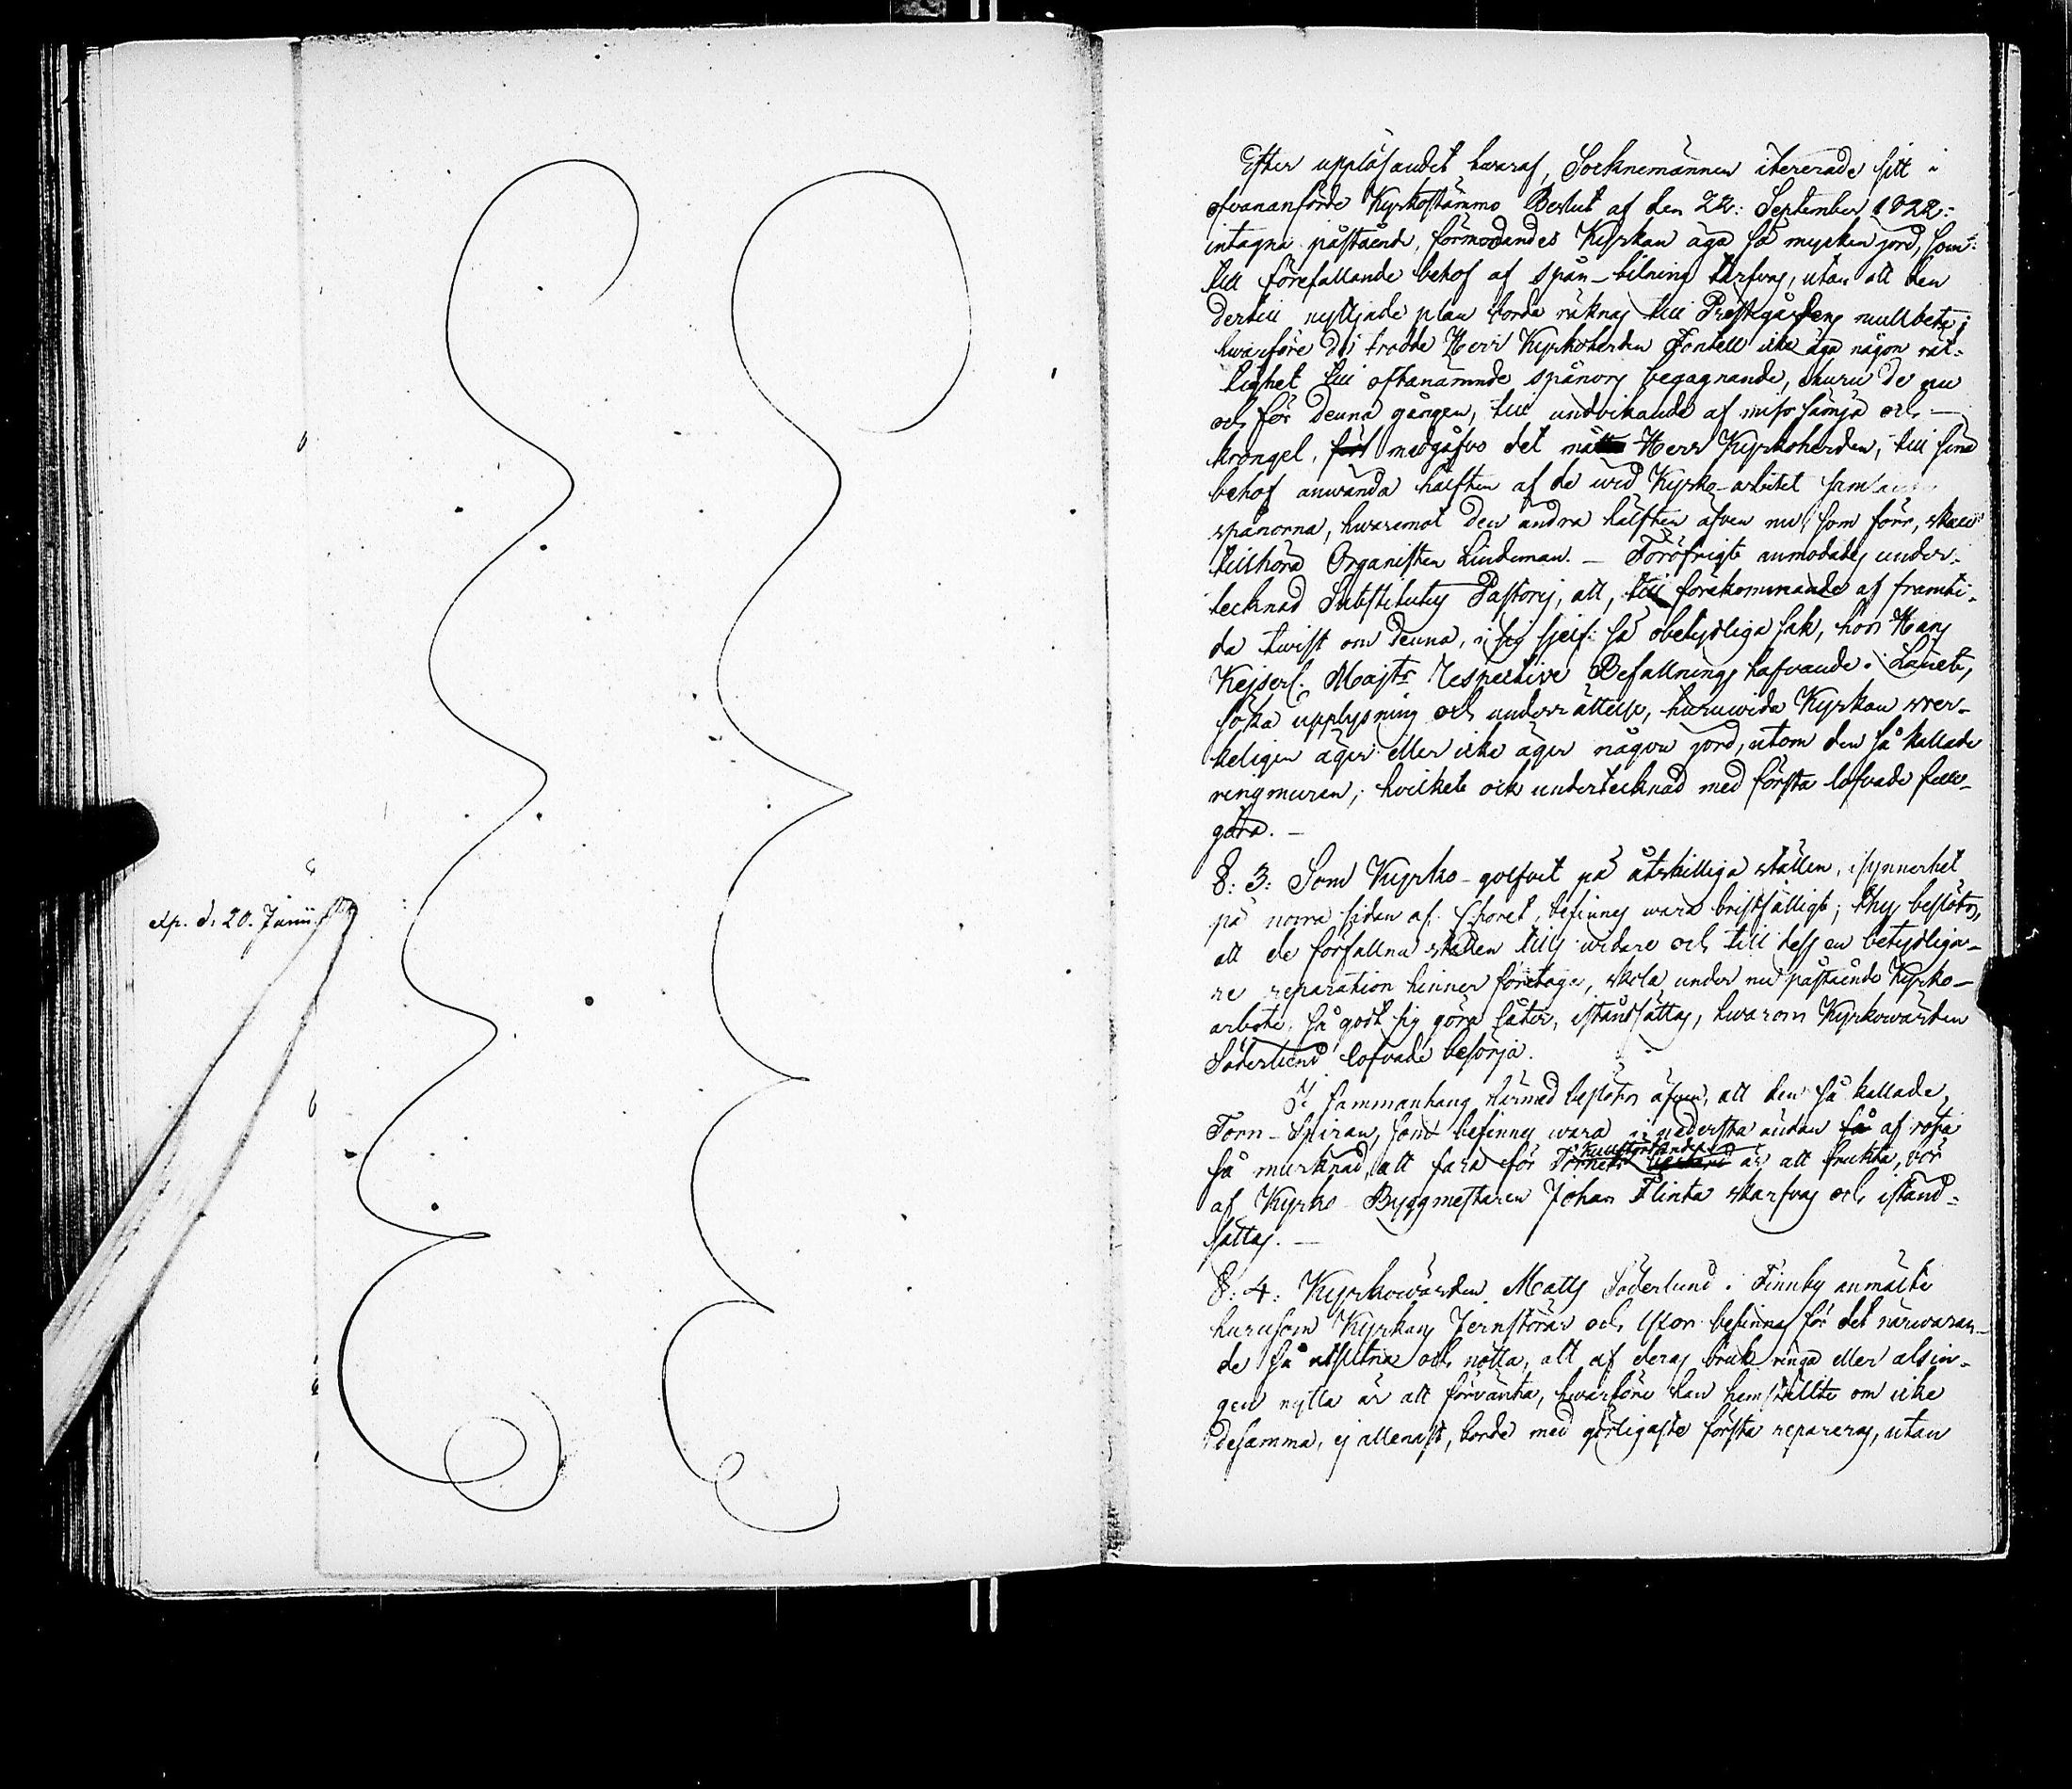 exp. d. 20. Junii
Efter uppläsandet hwaraf, Socknemännen itererade sitt i
ofvananförde Kyrkostämmo Beslut af den 22: September 1822:
intagna påstående, förmodandes Kyrkan äga så mycken jord, som
till förefallande behof af spån-bilning tarfvas, utan att den
dertill nyttjade plan borde räknas till Prestgårdens mullbete;
hwarföre de trodde Herr Kyrkoherden Fontell icke äga någon rät-
tighet till oftanämnde spånors begagnande, ehuru de nu
och för denna gången, till undvikande af missämja och
krångel, medgåfvo det Herr Kyrkoherden, till sina
behof använda hälften af de wid Kyrko-arbetet
spånorna, hwaremot den andra hälften äfven nu, som förr, skall
tillhöra Organisten Lindeman. - Föröfrigt anmodades under-
tecknad Substitutus Pastoris, att, till förekommande af framti-
da twist om denna, i sig sjelf: så obetydliga sak, hos Hans
Kejserl. Majts Respective Befallnings hafvande i Länet,
söka upplysning och underrättelse, huruwida Kyrkan wer-
keligen äger eller icke äger någon jord, utom den så kallade
ringmuren; hvilket ock undertecknad med första lofvade full-
göra. -
§: 3: Som Kyrko-golfvet på åtskilliga ställen, i synnerhet
på norra sidan af Choret, befinnes wara bristfälligt; thy beslöts,
att de förfallna ställen tills widare och till dess en betydliga-
re reparation hinner företagas, skola under nu påstående Kyrko-
arbete, så godt sig göra låter, iståndsättas, hwarom Kyrkowärden
Söderlund lofvade besörja.
I sammanhang härmed beslöts äfven, att den så kallade
Torn-Spiran, som befinnes wara i nedersta ändan så af röta
så murknad, att fara för Tornets kullstörtande är att frukta, bör
af Kyrko-Byggmestaren Johan Flinta skarfvas och istånd-
sättas. -
§: 4: Kyrkowärden Matts Söderlund i Finnby anmälte
hurusom Kyrkans Jernstörar och Yxor befinnas för det närwaran-
de så utslitna och nötta, att af deras bruk ringa eller alsin-
gen nytta är att förvänta, hwarföre han hemställte om icke
desamma, ej allenast, borde med görligaste första repareras, utan